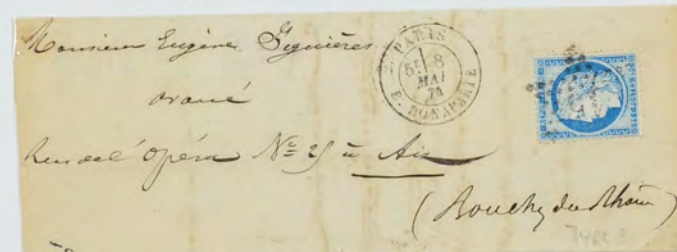 Monsieur Eugène Figuières
avoué
Rue de l'Opéra Nº 25 à Aix
(Bouches du Rhône)
PARIS
5E 8
MAI
74
R. BONAPARTE
TYPE 3